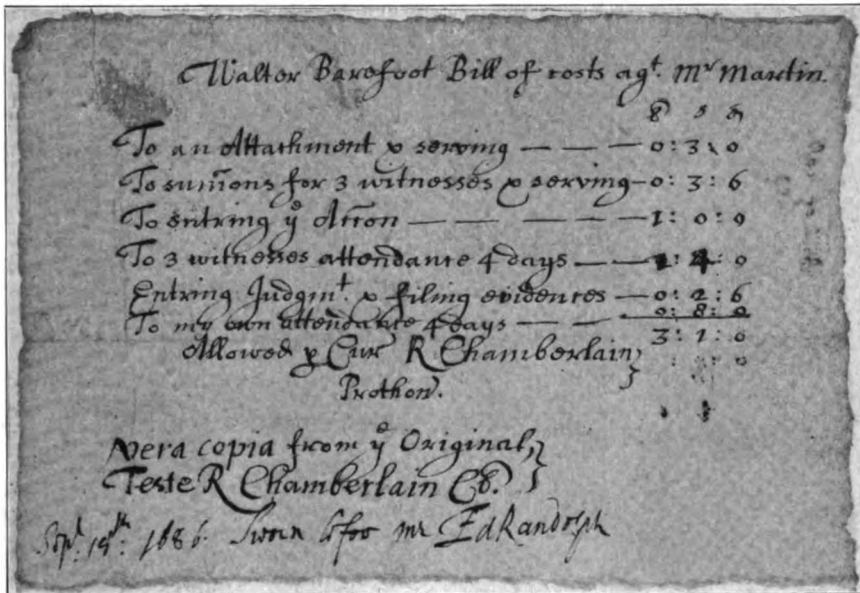 Walter Barefoot Bill of costs agt. Mr Martin.
To an Attachment & serving — — — 0: 3: 0
To sum̃ons for 3 witnesses & serving — 0: 3: 6
To Entring ye Accon — — — — — 1: 0: 0
To 3 witnesses attendance 4 days — — 1: 4: 0
Entring Judgmt. & filing evidences — 0: 2: 6
To my own attendance 4 days — — 0: 8: 0
3: 1: 0
Allowed p Cur R Chamberlain
Prothon.
vera copia from ye Original,
Teste R Chamberlain
Sept. 1686. Sworn before me Ed Randolph